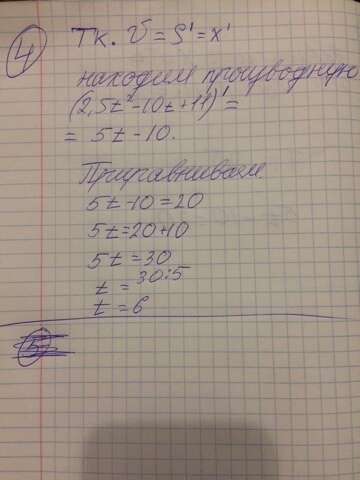 4 Т.к. V = S' = x'
находим производную
(2,5t²-10t+11)' =
= 5t - 10.
Приравниваем
5t-10=20
5t=20+10
5t=30
t = 30:5
t = 6